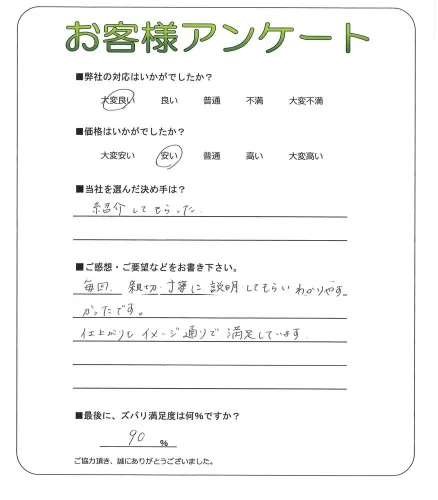 お客様アンケート
■弊社の対応はいかがでしたか?
大変良い 良い 普通 不満 大変不満
■価格はいかがでしたか?
大変安い 安い 普通 高い 大変高い
■当社を選んだ決め手は?
紹介してもらった.
■ご感想・ご要望などをお書き下さい。
毎回、親切・丁寧に説明してもらいわかりやす
かったです。
仕上がりもイメージ通りで満足しています.
■最後に、ズバリ満足度は何%ですか?
90 %
ご協力頂き、誠にありがとうございました。